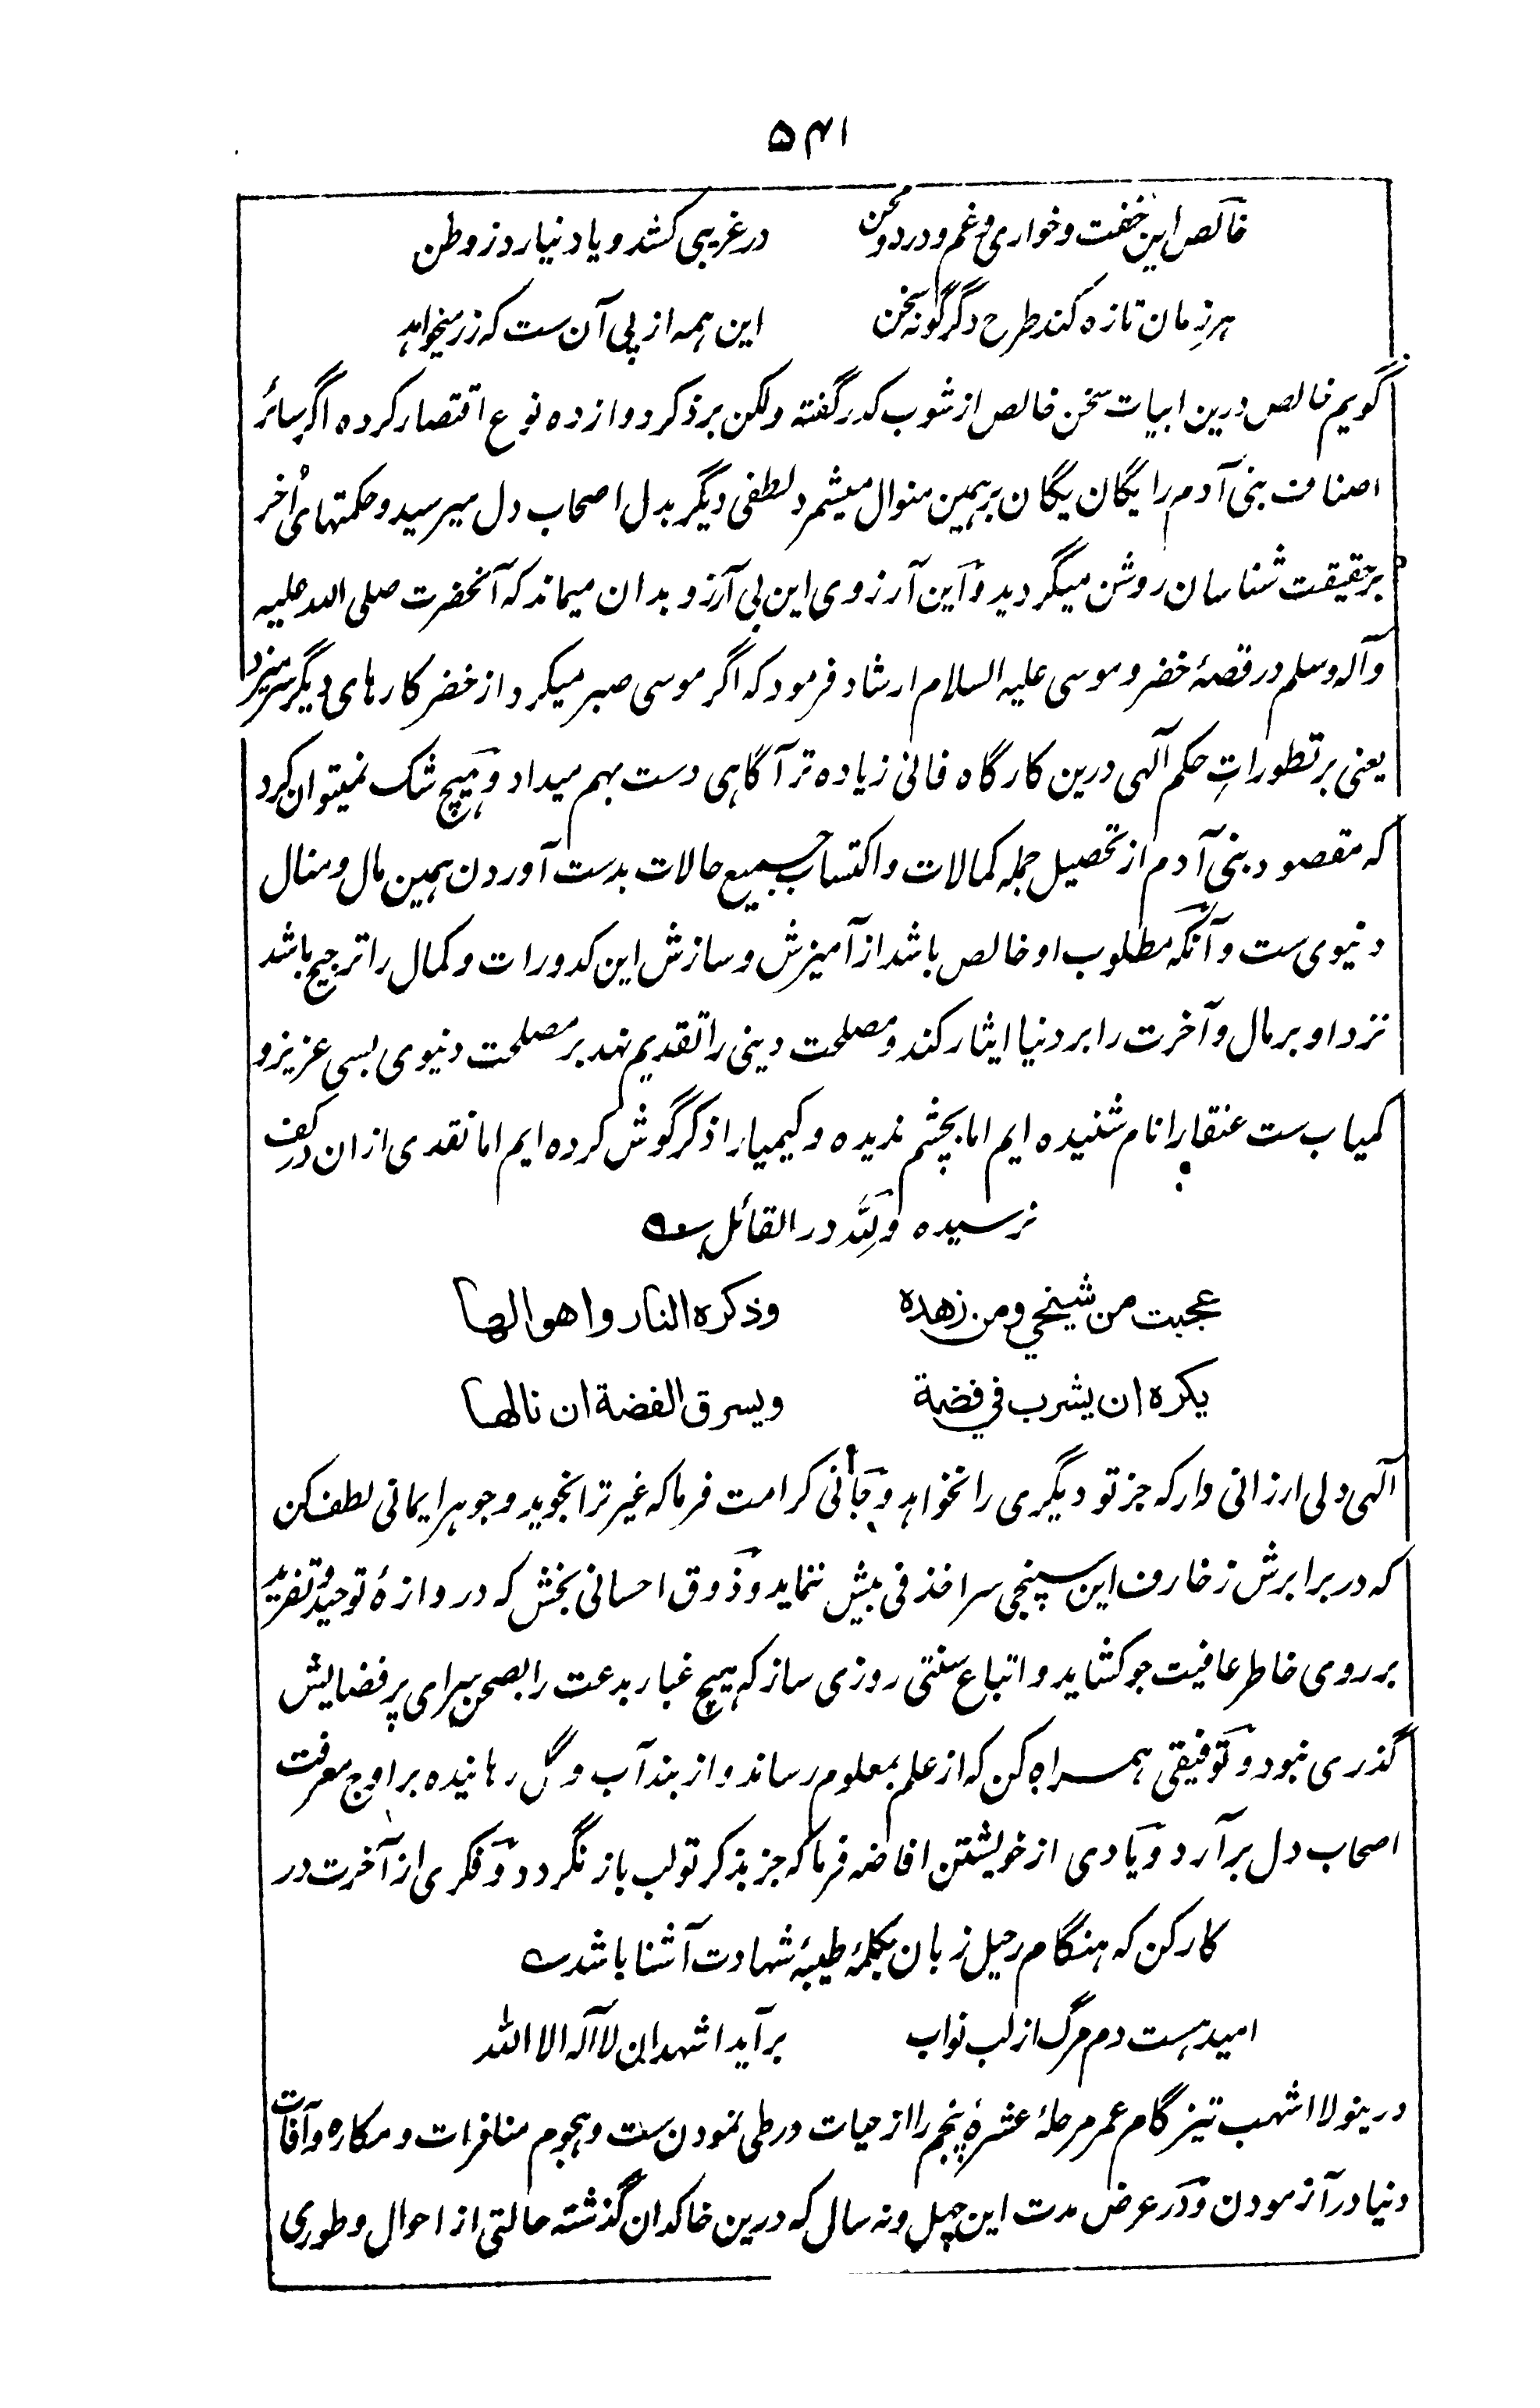 ۵۴۱
خالص این خفت و خواری و غم و درد و محن
در غریبی کشد و یاد نیارد ز وطن
هر زمان تازه کند طرح دگرگونه سخن
این همه از پی آن ست که زر میخواهد
گویم خالص درین ابیات سخن خالص از شوب کدر گفته ولکن بر ذکر دوازده نوع اقتصار کرده اگر سائر
اصناف بنی آدم را یگان یگان برهمین منوال میشمرد لطفی دیگر بدل اصحاب دل میرسید و حکمتهای اُخر
برحقیقت شناسان روشن میگردید و این آرزوی این بی آرزو بدان میماند که آنحضرت صلی الله علیه
وآله وسلم در قصۀ خضر و موسی علیه السلام ارشاد فرمود که اگر موسی صبر میکرد از خضر کارهای دیگر سر میزد
یعنی بر تطوراتِ حکم آلهی درین کارگاه فانی زیاده تر آگاهی دست بهم میداد و هیچ شک نمیتوان کرد
که مقصود بنی آدم از تحصیل جمله کمالات و اکتساب جمیع حالات بدست آوردن همین مال و منال
دنیوی ست و آنکه مطلوب او خالص باشد از آمیزش و سازش این کدورات و کمال را ترجیح باشد
نزد او بر مال و آخرت را بر دنیا ایثار کند و مصلحت دینی را تقدیم نهد بر مصلحت دنیوی بسی عزیز و
کمیاب ست عنقا را نام شنیده ایم اما بچشم ندیده و کیمیا را ذکر گوش کرده ایم اما نقدی ازان در کف
نرسیده و لِلّٰه در القائل ؎
عجبت من شیخی و من زهده
وذکره النار واهوالها
یکره ان یشرب فی فضة
ویسرق الفضة ان نالها
آلهی دلی ارزانی دار که جز تو دیگری را نخواهد و جانی کرامت فرما که غیر ترا نجوید و جوهر ایمانی لطف کن
که در برابرش زخارف این سپنجی سرا خذفی بیش ننماید و ذوق احسانی بخش که دروازۀ توحید و تفرید
بر روی خاطر عافیت جو کشاید و اتباع سنتی روزی ساز که هیچ غبار بدعت را بصحن سرای پر فضایش
گذری نبود و توفیقی همراه کن که از علم بمعلوم رساند و از بند آب و گل رهانیده بر اوج معرفت
اصحاب دل بر آرد و یادی از خویشتن افاضه فرما که جز بذکر تو لب باز نگردد و فکری از آخرت در
کار کن که هنگام رحیل زبان بکلمۀ طیبۀ شهادت آشنا باشد ؎
امید هست دم مرگ از لب نواب
بر آید اشهد ان لا آله الا الله
درینولا اشهب تیز گام عمر مرحلۀ عشرۀ پنجم را از حیات در طی نمودن ست و هجوم منافرات و مکاره و آفات
دنیا در آزمودن و در عرض مدت این چهل و نه سال که درین خاکدان گذشته حالتی از احوال و طوری